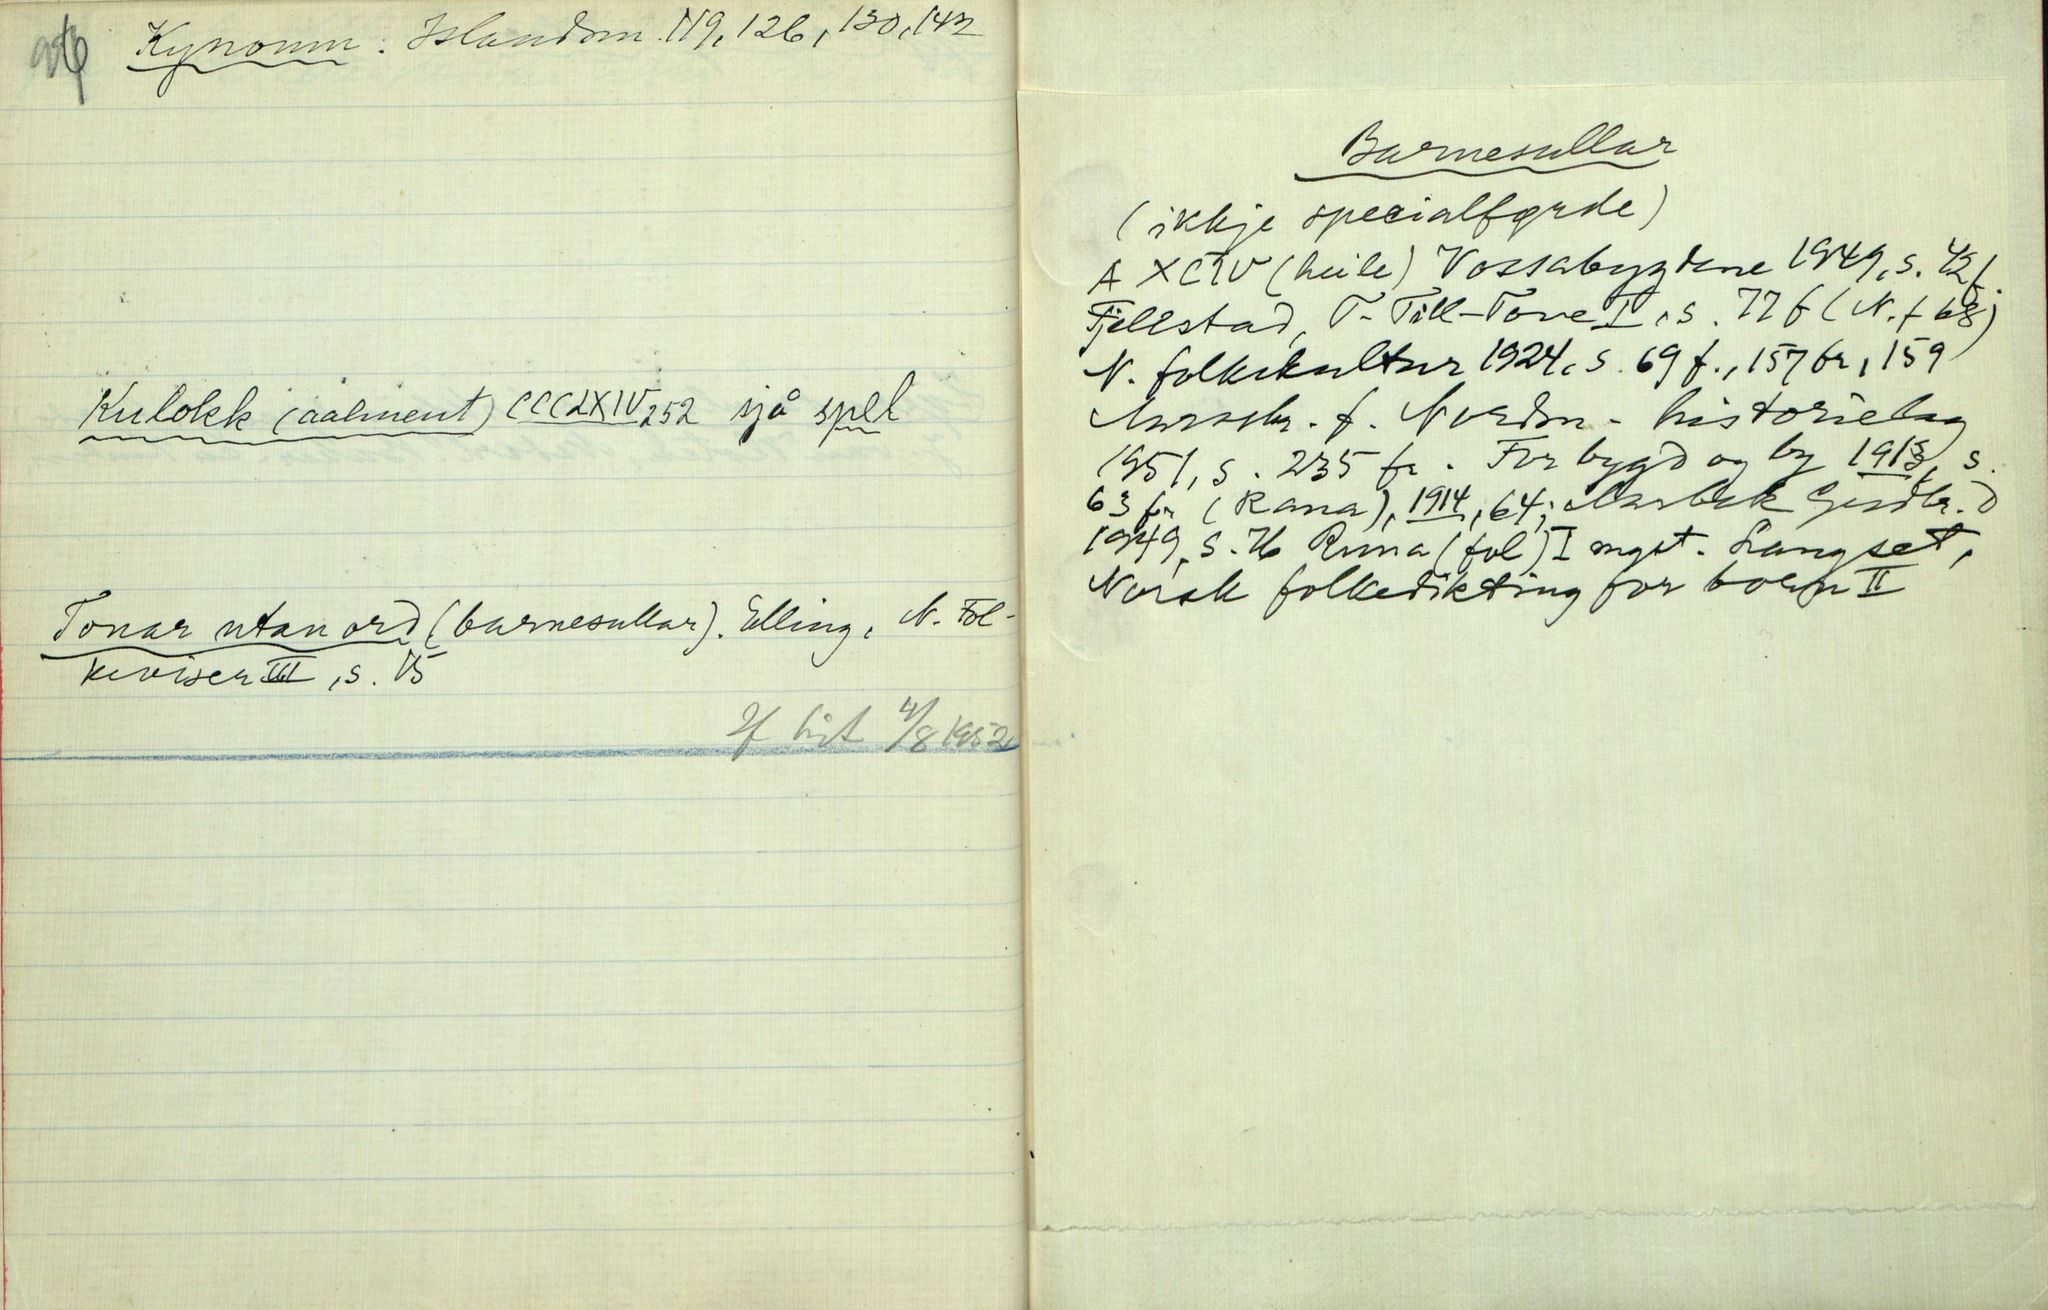 Kynonm: Islandsm. 119, 126, 130, 142
Kulokk (aalment) CCCLXIV 252 sjå spel
Tonar utan ord (barnesullar). Elling, N. Fol-
keviser III, s. 15
hit 4/8 1952
Barnesullar
(ikkje specialførde)
A XCIV (heile) Vossabygdene 1949, s. 42f.
Fjellstad, T- Till-Tove I, s. 77 f (N. f 68)
N. folkekultur 1924, s. 69 f., 157 fr, 159
f. Nordm. historielag
1951, s. 235 fr. For bygd og by 1913, s.
63 fr (Rana), 1914, 64; Aarbok Gudbr.d
1949, s. 76 Runa (fol) I mgst. Langset,
Norsk folkedikting for born II